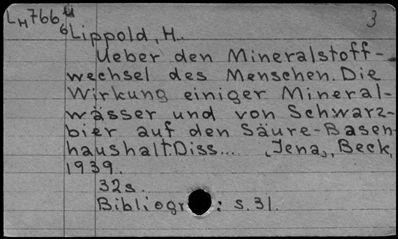 LH766u 3
6Lippold, H.
Ueber den Mineralstoff-
wechsel des Menschen. Die
Wirkung einiger Mineral-
wässer und von Schwarz-
bier auf den Säure-Basen
haushalt. Diss... Jena, Beck,
1939.
32s.
Bibliogr.: s. 31.